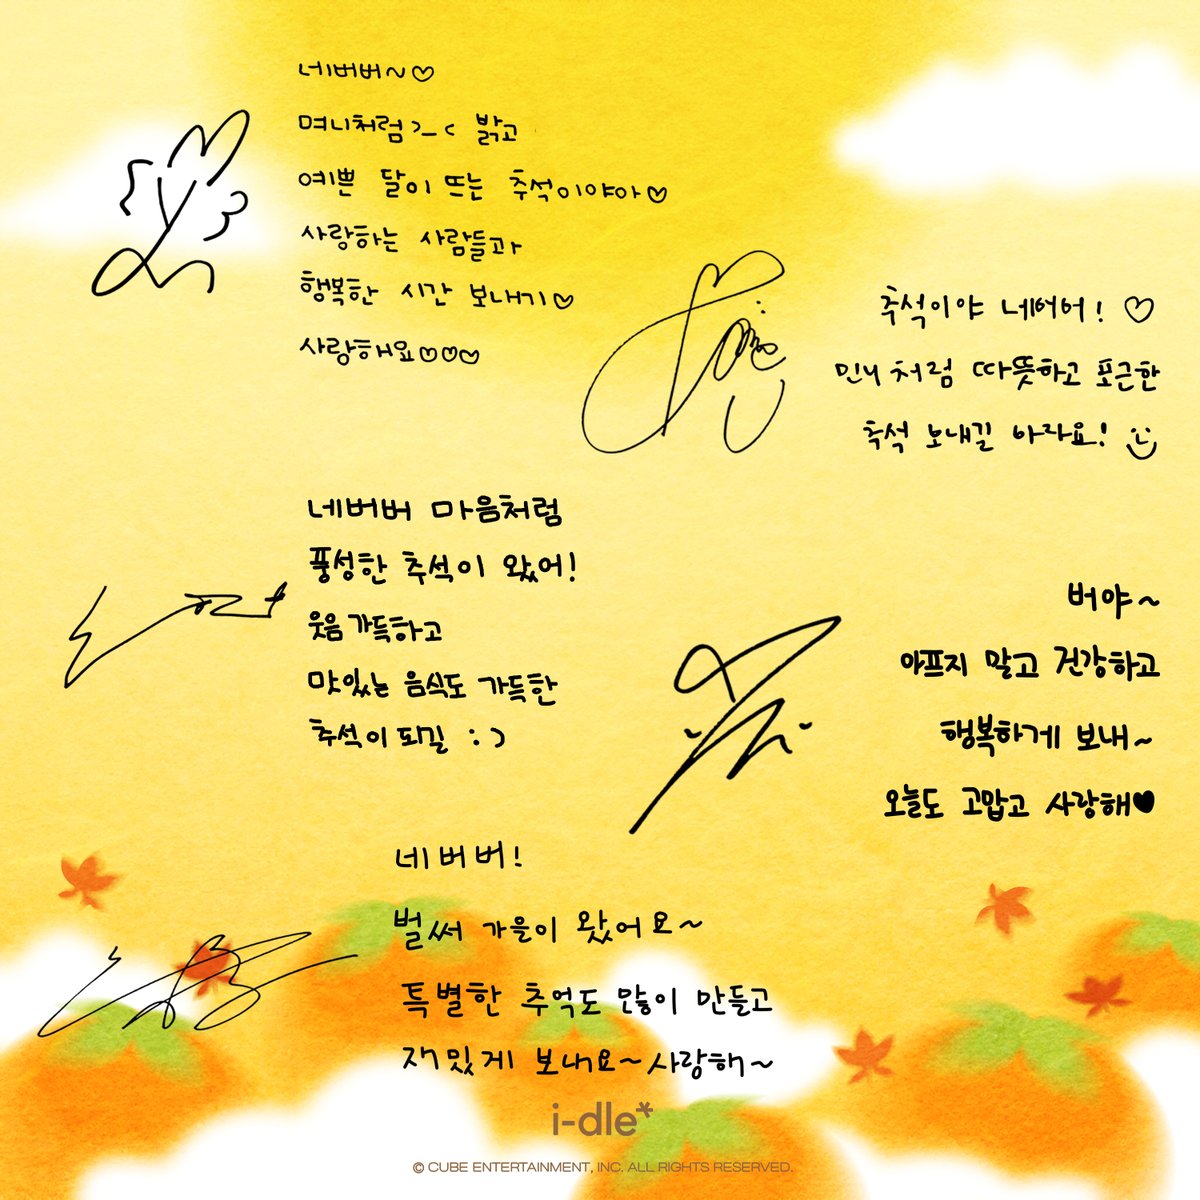 네버버~♡
며니처럼>_< 밝고
예쁜 달이 뜨는 추석이야아♡
사랑하는 사람들과
행복한 시간 보내기♡
사랑해요♡♡♡
추석이야 네버버! ♡
민니처럼 따뜻하고 포근한
추석 보내길 바라요! :)
네버버 마음처럼
풍성한 추석이 왔어!
웃음 가득하고
맛있는 음식도 가득한
추석이 되길 :)
버야~
아프지 말고 건강하고
행복하게 보내~
오늘도 고맙고 사랑해♥
네버버!
벌써 가을이 왔어요~
특별한 추억도 많이 만들고
재밌게 보내요~ 사랑해~
i-dle*
© CUBE ENTERTAINMENT, INC. ALL RIGHTS RESERVED.